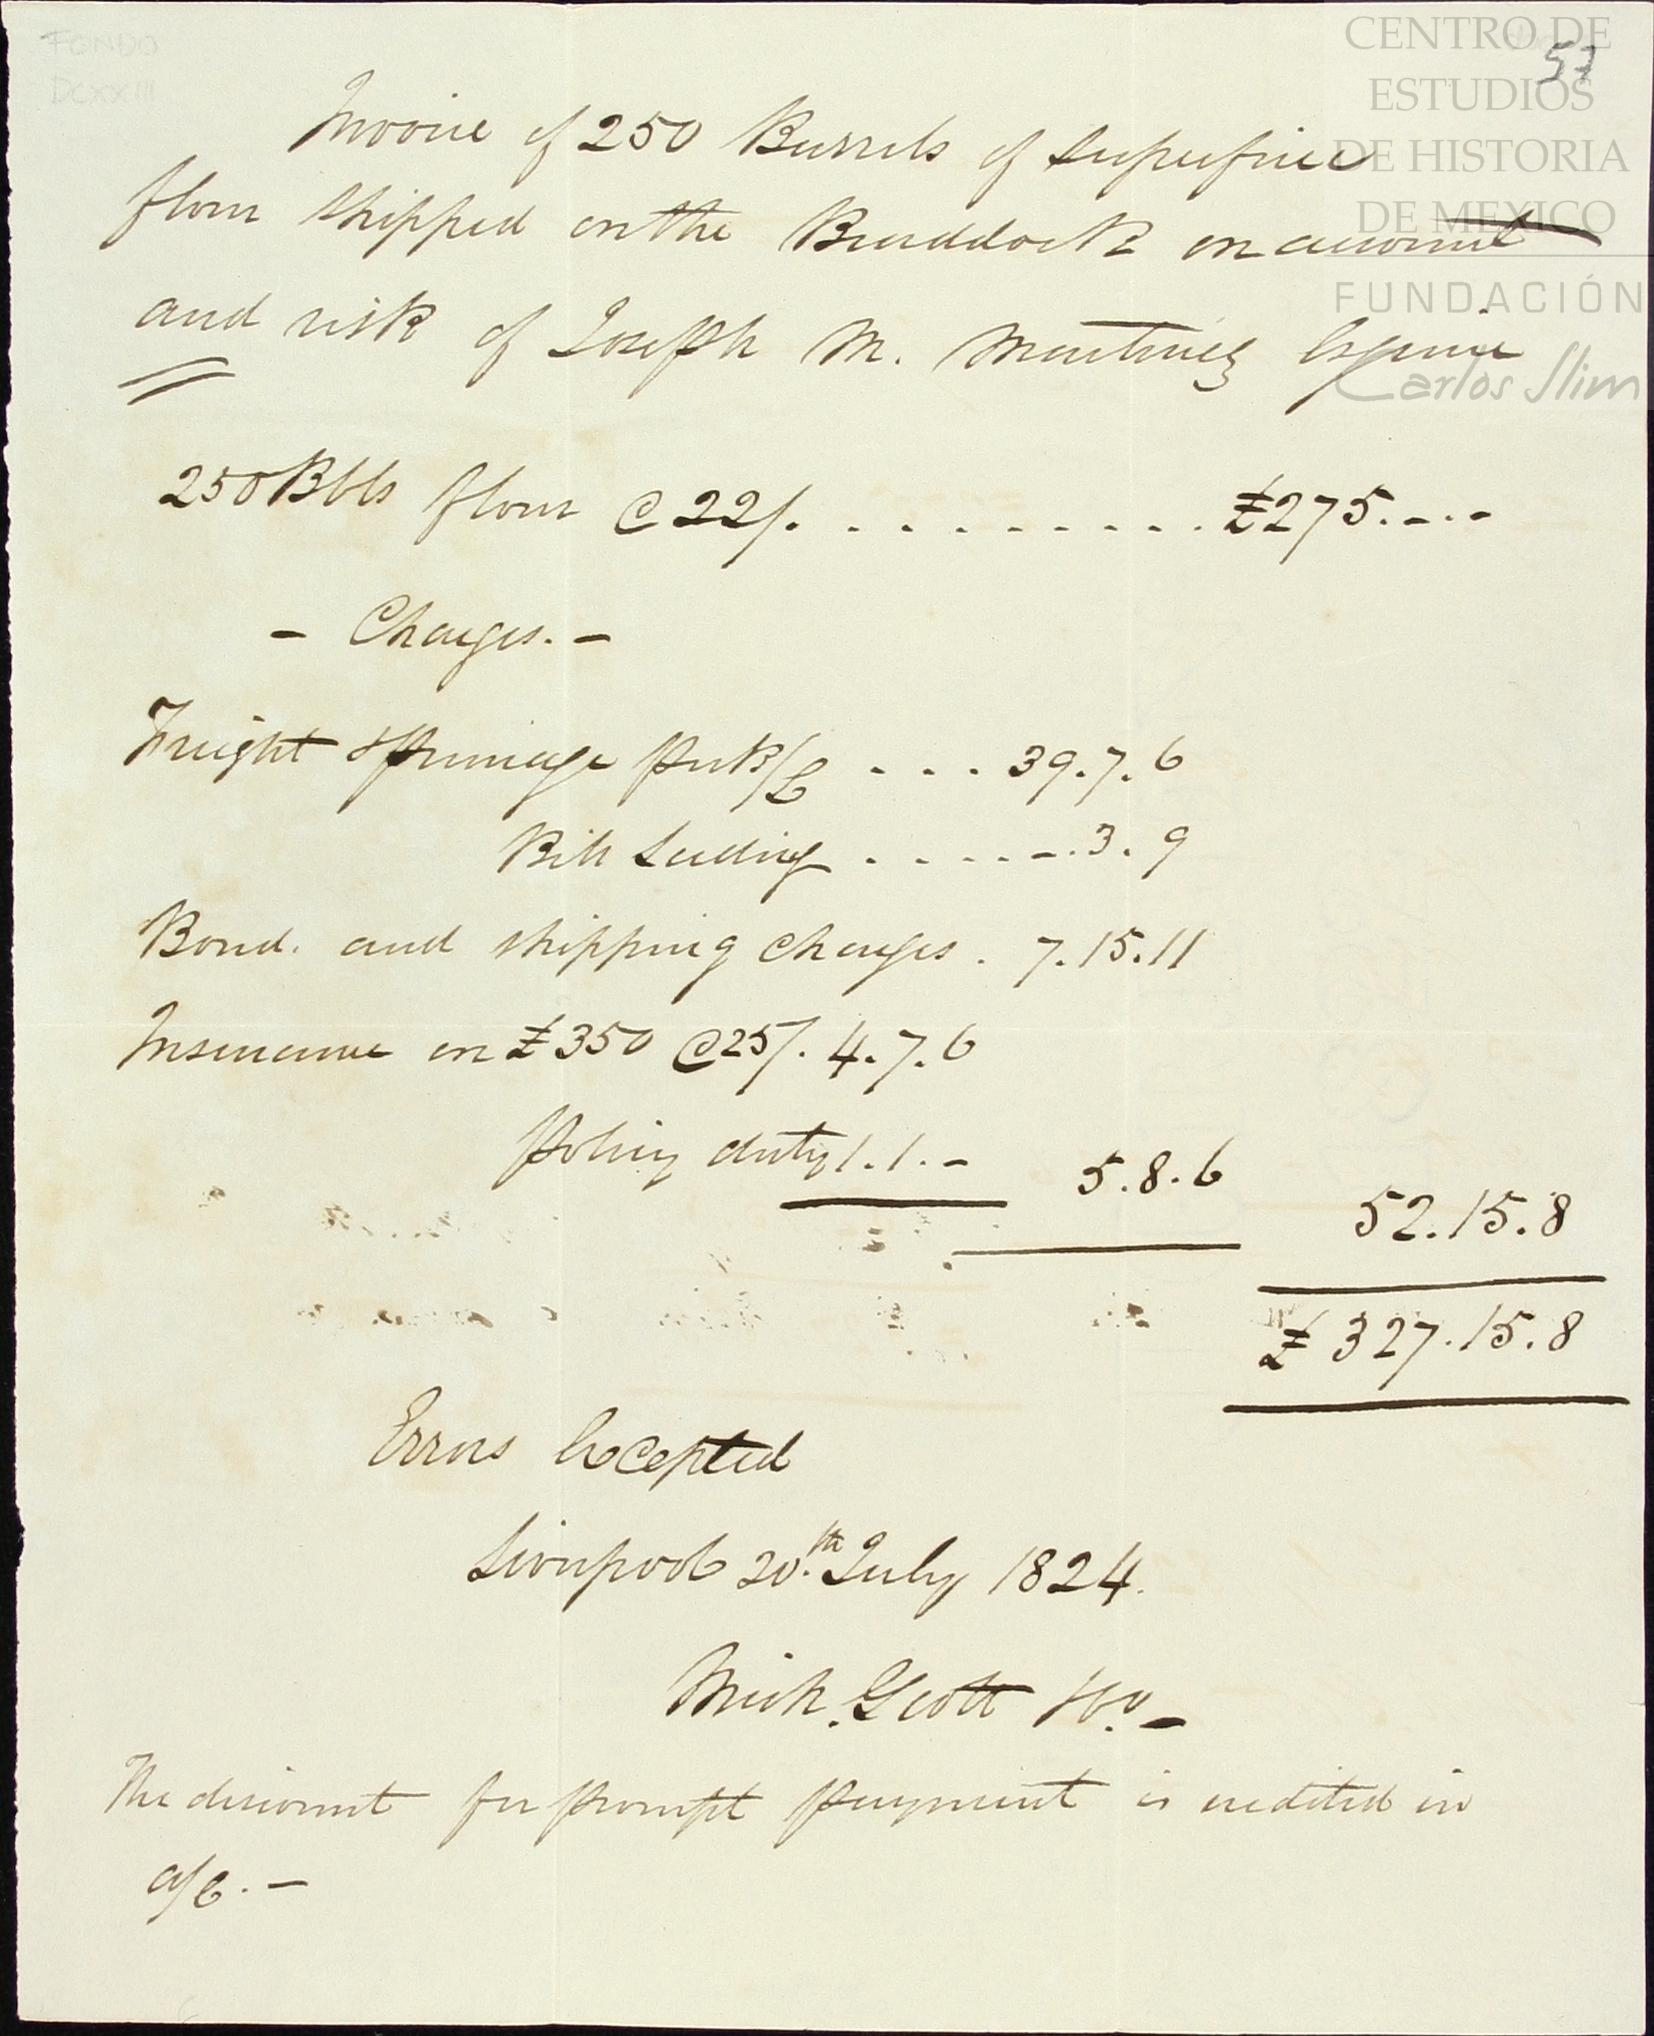 FONDO
DCXXIII
57
CENTRO DE
ESTUDIOS
DE HISTORIA
DE MEXICO
FUNDACIÓN
Carlos Slim
Invoice of 250 Barrels of superfine
flour shipped on the Braddock on account
and risk of Joseph M. Martinez Esquire
250 Bbls flour @ 22/. . . . . . . . . . £275.-.-
- Charges. -
Freight & Primage per B/L . . . 39.7.6
Bill Lading . . . . -.3.9
Bond. and shipping charges . 7.15.11
Insurance on £350 @ 25/. 4.7.6
Policy duty 1.1.- 5.8.6 52.15.8
£ 327.15.8
Errors Excepted
Liverpool 20.th July 1824.
Mich. Scott &Co. -
The discount for prompt payment is credited in
a/c. -